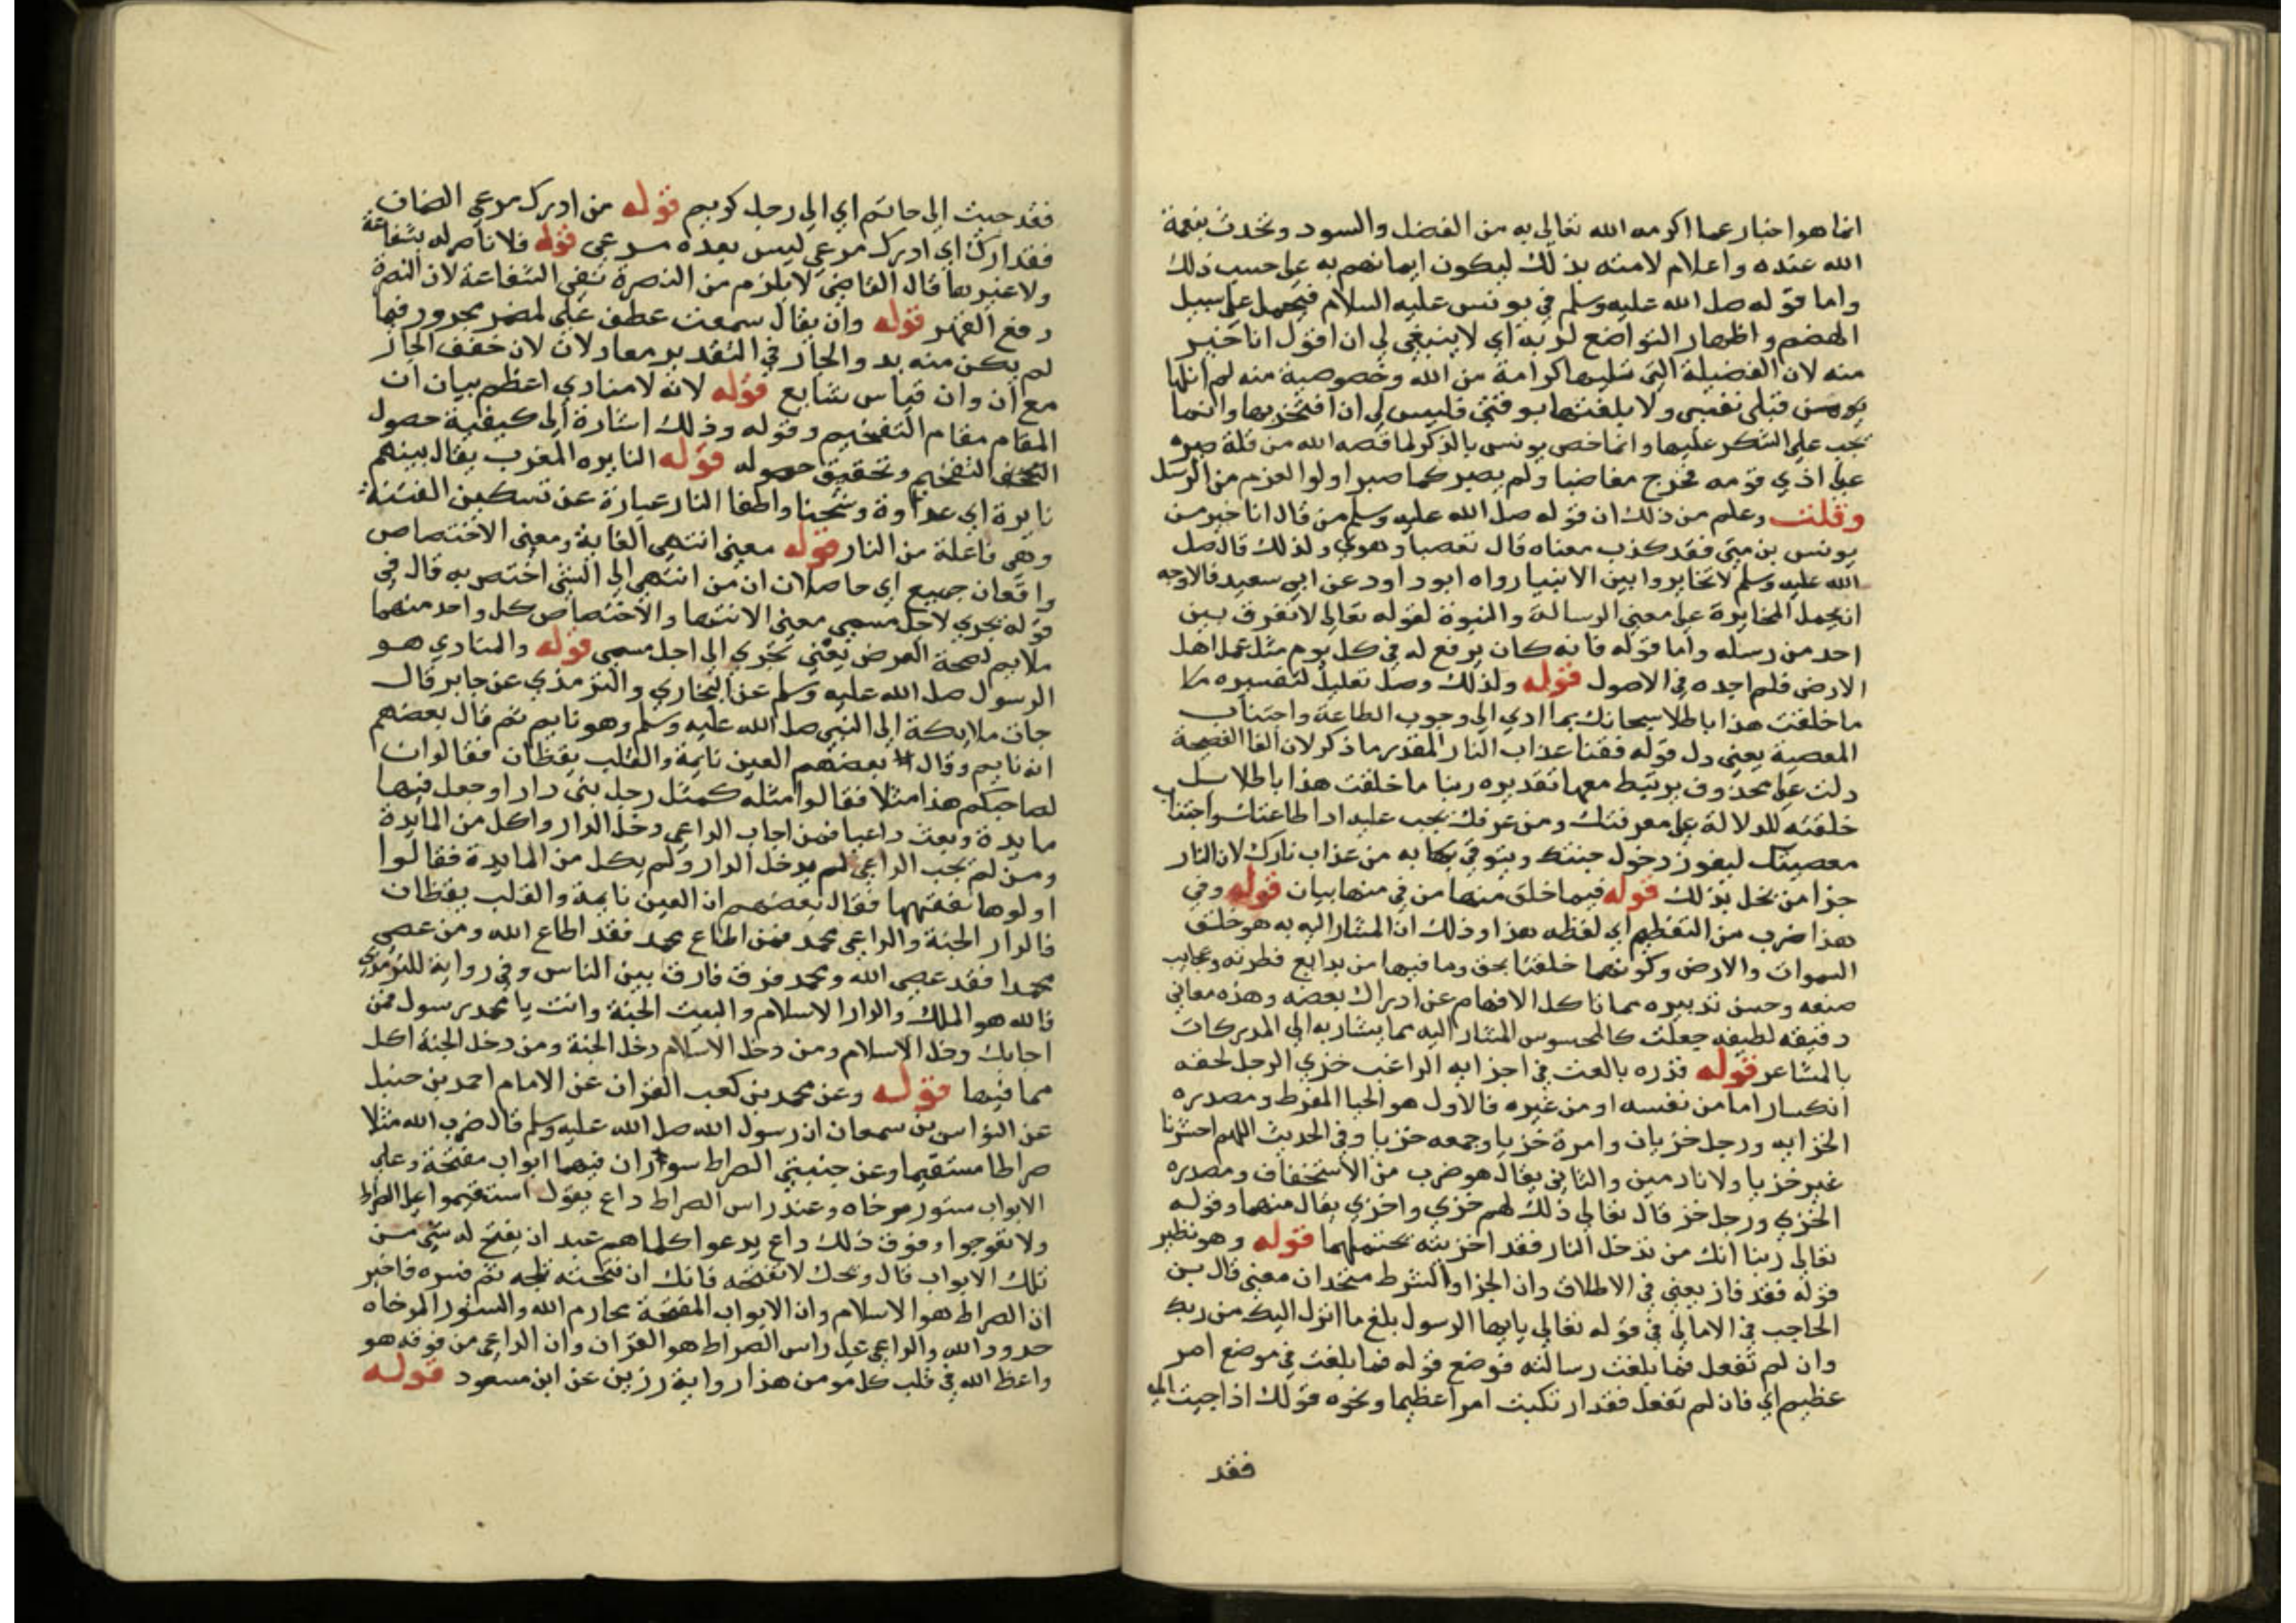 انما هو اخبار عما اكرمه الله تعالى به من الفضل والسود وتحدث بنعمة
الله عنده واعلام لامته بذلك ليكون ايمانهم به على حسب ذلك
واما قوله صلى الله عليه وسلم في يونس عليه السلام فيحمل على سبيل
الهضم واظهار التواضع لربه اي لا ينبغي لي ان اقول انا خير
منه لان الفضيلة التي نلتها كرامة من الله وخصوصية منه لم انلها
من قبلي نفسي ولا بلغتها بوقتي فليس لي ان افتخر بها وانما
يجب علي الشكر عليها وانما خص يونس بالذكر لما قصه الله من قلة صبره
على اذي قومه فخرج مغاضبا ولم يصبر كما صبر اولوا العزم من الرسل
وقلت وعلم من ذلك ان قوله صلى الله عليه وسلم من قال انا خير من
يونس بن متى فقد كذب معناه قال تعصبا وهوي ولذلك قال صلى
الله عليه وسلم لا تخايروا بين الانبيا رواه ابو داود عن ابي سعيد فالاوجه
ان يحمل المخايرة على معنى الرسالة والنبوة لقوله تعالى لا نفرق بين
احد من رسله واما قوله فانه كان يرفع له في كل يوم مثل عمل اهل
الارض فلم اجده في الاصول قوله ولذلك وصل تعليل لتفسيره
ما خلقت هذا باطلا سبحانك بما ادي الى وجوب الطاعة واجتناب
المعصية يعني دل قوله فقنا عذاب النار المقدر ما ذكر لان الفا الفصيحة
دلت على محذوف يرتبط معها تقديره ربنا ما خلقت هذا باطلا بل
خلقته للدلالة على معرفتك ومن عرفك يجب عليه ادا طاعتك واجتناب
معصيتك ليفوز دخول جنتك ويتوقي بها به من عذاب نارك لان النار
جزا من يخل بذلك قوله فيما خلق منها من في منها بيان قوله وفي
هذا ضرب من التعظيم اي لفظه هذا وذلك ان المشار اليه به هو خلق
السموات والارض وكونهما خلقتا بحق وما فيها من بدايع فطرته وعجايب
صنعه وحسن تدبيره مما تاكل الافهام عن ادراك بعضه وهذه معاني
دقيقه لطيفه جعلت كالمحسوس المشار اليه مما يشار به الى المدركات
بالمشاعر قوله الراغب خزي الرجل لحقه
انكسار اما من نفسه او من غيره فالاول هو الحيا المفرط ومصدره
الخزايه ورجل خزيان وامرة خزيا وجمعه خزيا وفي الحديث اللهم احشرنا
غير خزيا ولا نادمين والثاني يقال هو ضرب من الاستخفاف ومصدره
الخزي ورجل خز قال تعالى ذلك لهم خزي واخزي يقال منهما وقوله
تعالى ربنا انك من تدخل النار فقد اخزيته يحتملهما قوله وهو نظير
قوله فقد فاز يعني في الاطلاق وان الجزا والشرط متحدان معنى قال بن
الحاجب في الامالي في قوله تعالى يايها الرسول بلغ ما انزل اليك من ربك
وان لم تفعل فما بلغت رسالته فوضع قوله فما بلغت في موضع امر
عظيم اي فان لم تفعل فقد ارتكبت امرا عظيما ونحوه قولك اذا جيت الى
فقد
فقد جيت الى حاتم اي الى رجل كريم قوله من ادرك مرعى الضمان
فقد ادرك اي ادرك مرعى ليس بعده مرعى قوله فلا ناصر له بشفاعة
ولا غيرها قال القاضي لا يلزم من النصرة نفي الشفاعة لان النصرة
دفع القهر قوله وان يقال سمعت عطف على لمضمر مجرور فيها
لم يكن منه بد والجار في التقدير معادلان لان خفف الجار
مع ان وان قياس شايع قوله لانه لا منادي اعظم بيان ان
المقام مقام التفخيم وقوله وذلك اشارة الى كيفية حصول
التفخيم وتحقيق حصوله قوله النايره المغرب يقال بينهم
نايرة اي عداوة وشحنا واطفا النار عبارة عن تسكين الفتنة
وهي فاعلة من النار قوله معنى انتهى الغاية ومعنى الاختصاص
واقعان جميع اي حاصلان ان من انتهى الى الشي اختص به قال في
قوله يجري لاجل مسمى معنى الانتها والاختصاص كل واحد منهما
ملايم لصحة الغرض يعني تجري الى اجل مسمى قوله والمنادي هو
الرسول صلى الله عليه وسلم عن البخاري والترمذي عن جابر قال
جات ملايكة الى النبي صلى الله عليه وسلم وهو نايم ثم قال بعضهم
انه نايم وقال بعضهم العين نايمة والقلب يقظان فقالوا ان
لصاحبكم هذا مثلا فقالوا مثله كمثل رجل بنى دارا وجعل فيها
مايدة وبعث داعيا فمن اجاب الداعي دخل الدار واكل من المايدة
ومن لم يجب الداعي لم يدخل الدار ولم يكل من المايدة فقالوا
اولوها نفقهها فقال بعضهم ان العين نايمة والقلب يقظان
فالدار الجنة والداعي محمد فمن اطاع محمد فقد اطاع الله ومن عصى
محمدا فقد عصى الله ومحمد فرق فارق بين الناس وفي رواية للترمذي
فالله هو الملك والدار الاسلام والبيت الجنة وانت يا محمد رسول فمن
اجابك دخل الاسلام ومن دخل الاسلام دخل الجنة ومن دخل الجنة اكل
مما فيها قوله وعن محمد بن كعب القران عن الامام احمد بن حنبل
عن النواس بن سمعان ان رسول الله صلى الله عليه وسلم قال ضرب الله مثلا
صراطا مستقيما وعن جنبتي الصراط سوران فيهما ابواب مفتحة وعلى
الابواب ستور مرخاه وعند راس الصراط داع يقول استقيموا على الصراط
ولا تعوجوا وفوق ذلك داع يدعوا كلما هم عبد ان يفتح له شي من
تلك الابواب قال ويحك لا تفتحه فانك ان فتحته تلجه ثم فسره فاخبر
ان الصراط هو الاسلام وان الابواب المفتحة محارم الله والستور المرخاه
حدود الله والداعي على راس الصراط هو القران وان الداعي من فوقه هو
واعظ الله في قلب كل مومن هذا رواية رزين عن ابن مسعود قوله